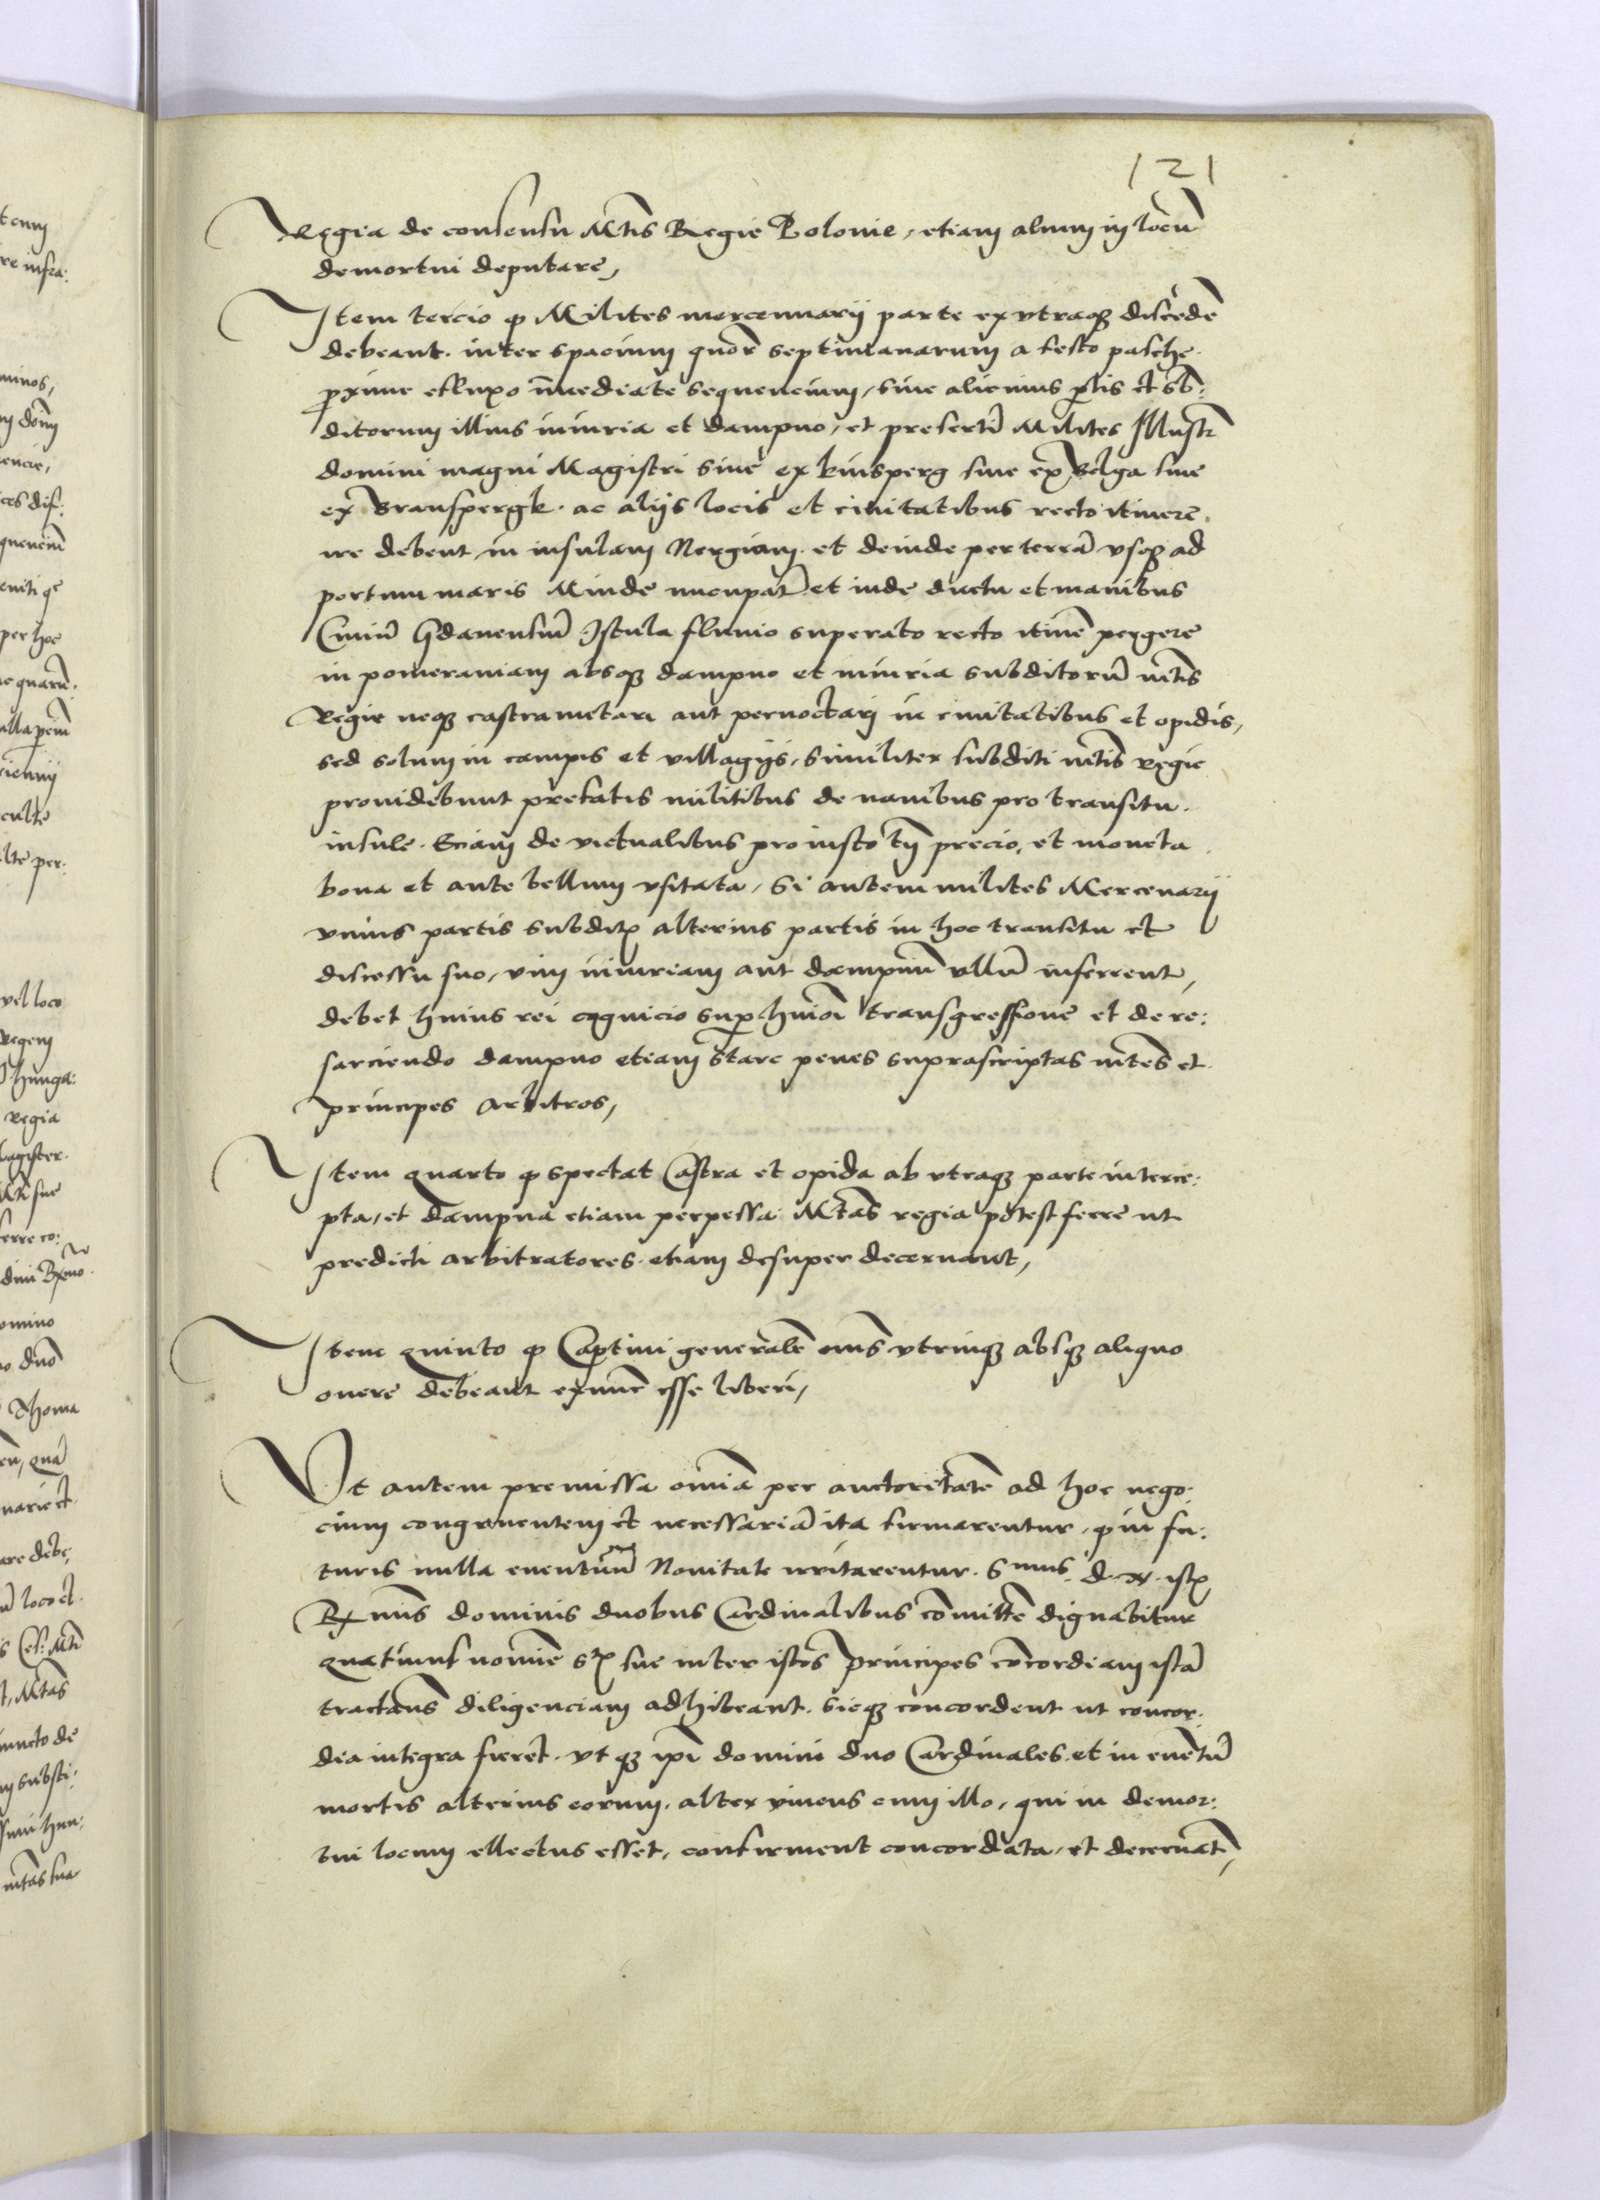 121
Regia de consensu Mtis Regie Polonie, etiam alium in locũ
demortui deputare,
Item tercio ꝙ Milites mercennarij parte ex vtraqꝫ discedẽ
debeant. inter spacium quor̃ septimanarum a festo pasche
proxime effluxo ĩmediate sequencium, sine alicuius ꝑtis et sb̃:
ditorum illius iniuria et dampno, et presertĩ Milites Illustr̃
domini magni Magistri siue ex kinsperg siue ex Velga siue
ex Branspergk. ac alijs locis et ciuitatibus recto itinere
ire debent in insulam Nergiam. et deinde per terrã vsqꝫ ad
portum maris Minde nuncupat̃ et inde ductu et manibus
Ciuiũ Gdanensiũ Istula fluuio superato recto itinẽ pergere
in pomeraniam absqꝫ dampno et iniuria subditorũ mtis
Regie neqꝫ castrametari aut pernoctari in ciuitatibus et opidis,
sed solum in campis et villagijs, similiter subditi mtis regie
prouidebunt prefatis militibus de nauibus pro transitu.
insule. Eciam de victualibus pro iusto tñ precio, et moneta
bona et ante bellum vsitata, Si autem milites Mercenarij
vnius partis subdit alterius partis in hoc transitu et
discessu suo, vim iniuriam aut dampnũ vllũ inferrent,
debet huius rei cognicio suꝑ huiõi transgressione et de re:
sarciendo dampno etiam stare penes suprascriptas mtes et
principes arbitros,
Item quarto ꝙ spectat Castra et opida ab vtraqꝫ parte interce:
pta, et dampna etiam perpessa Mtas regia potest ferre ut
predicti arbitratores etiam desuper decernant,
Item quinto ꝙ Captiui generalẽ om̃s vtrinqꝫ absqꝫ aliquo
onere debeant exnũc esse liberi,
Vt autem premissa om̃ia per auctoritatẽ ad hoc nego:
cium congruentem et necessariã ita firmarentur, ꝙ in fu:
turis nulla euentuũ Nouitate irritarentur. Smus d. n. ist
Rmis dominis duobus Cardinalibus cõmittẽ dignabitur
quatinus nomine st sue inter istos principes cõcordiam istã
tractans diligenciam adhibeant. sicqꝫ concordent ut concor:
dia integra fieret. vt qꝫ ip̃i domini duo Cardinales. et in euẽtũ
mortis alterius eorum, alter viuens cum illo, qui in demor:
tui locum ellectus esset, confirment concordata, et decernãt,